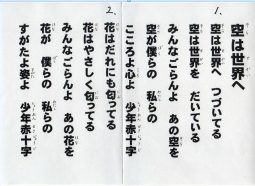 空は世界へ
1.
空は世界へ つづいてる
空は世界を だいている
みんなごらんよ あの空を
空が僕らの 私らの
こころよ心よ 少年赤十字
2.
花はだれにも匂ってる
花はやさしく匂ってる
みんなごらんよ あの花を
花が 僕らの 私らの
すがたよ姿よ 少年赤十字